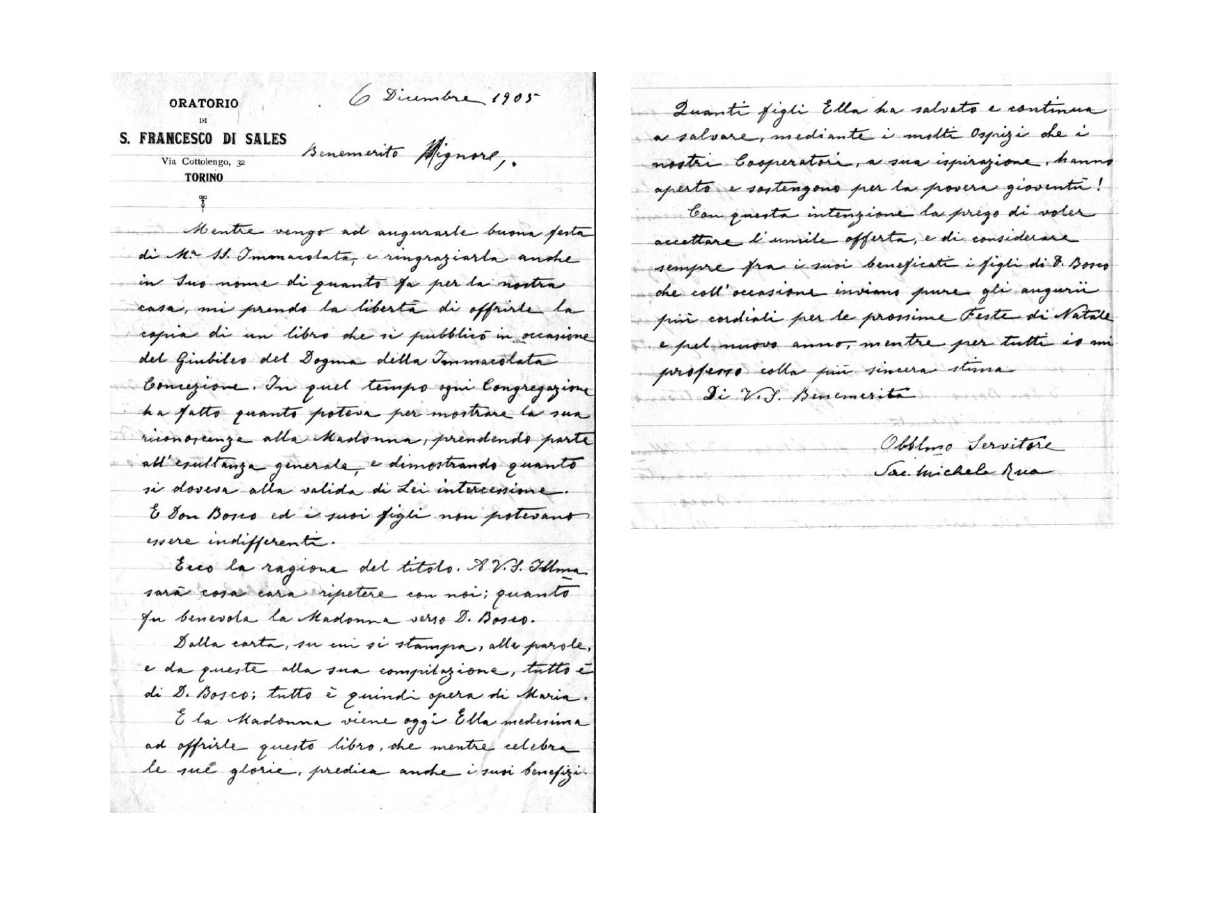 ORATORIO
DI
S. FRANCESCO DI SALES
Via Cottolengo, 32
TORINO
6 Dicembre 1905
Benemerito Signore,
Mentre vengo ad augurarle buona festa
di Ma SS. Immacolata, e ringraziarla anche
in Suo nome di quanto fa per la nostra
casa, mi prendo la libertà di offrirle la
copia di un libro che si pubblicò in occasione
del Giubileo del Dogma della Immacolata
Concezione. In quel tempo ogni Congregazione
ha fatto quanto poteva per mostrare la sua
riconoscenza alla Madonna, prendendo parte
all'esultanza generale, e dimostrando quanto
si doveva alla valida di Lei intercessione.
E Don Bosco ed i suoi figli non potevano
essere indifferenti.
Ecco la ragione del titolo. A V. S. Illma
sarà cosa cara ripetere con noi; quanto
fu benevola la Madonna verso D. Bosco.
Dalla carta, su cui si stampa, alle parole,
e da queste alla sua compilazione, tutto è
di D. Bosco; tutto è quindi opera di Maria.
E la Madonna viene oggi Ella medesima
ad offrirle questo libro, che mentre celebra
le sue glorie, predica anche i suoi benefizi.
Quanti figli Ella ha salvato e continua
a salvare, mediante i molti Ospizi che i
nostri Cooperatori, a sua ispirazione, hanno
aperto e sostengono per la povera gioventù!
Con questa intenzione la prego di voler
accettare l'umile offerta, e di considerare
sempre fra i suoi beneficati i figli di D. Bosco
che coll'occasione inviano pure gli augurii
più cordiali per le prossime Feste di Natale
e pel nuovo anno, mentre per tutti io mi
professo colla più sincera stima
Di V. S. Benemerita
Obblmo Servitore
Sac. Michele Rua